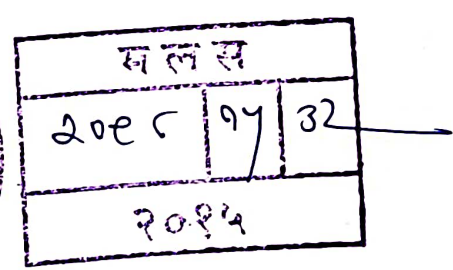 म ल स
२०९८ १५ ३२
२०१५